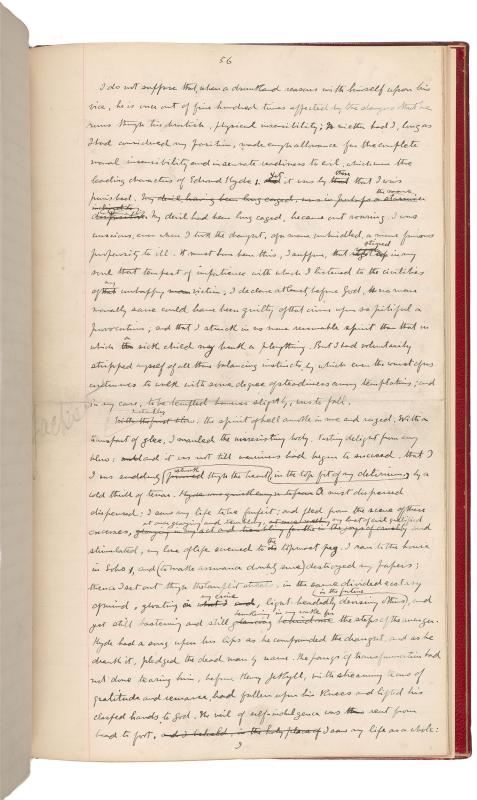 56
I do not suppose that, when a drunkard reasons with himself upon his
vice, he is once out of five hundred times affected by the dangers that he
runs through his brutish, physical insensibility; neither had I, long as
I had considered my position, made enough allowance for the complete
moral insensibility and insensate readiness to evil, which were the
leading characters of Edward Hyde. yet it was by these that I was
punished. My devil having been long caged, was in perhaps a
My devil had been long caged, he came out roaring. I was
conscious, even when I took the draught, of a more unbridled, a more furious
propensity to ill. It must have been this, I suppose, that stirred in my
soul that tempest of impatience with which I listened to the civilities
of my unhappy victim; I declare at least, before God, no man
morally sane could have been guilty of that crime upon so pitiful a
provocation; and that I struck in no more reasonable spirit than that in
which a sick child may break a plaything. But I had voluntarily
stripped myself of all those balancing instincts, by which even the worst of us
continues to walk with some degree of steadiness among temptations; and
in my case, to be tempted, however slightly, was to fall.
Instantly the spirit of hell awoke in me and raged. With a
transport of glee, I mauled the unresisting body, tasting delight from every
blow; and it was not till weariness had begun to succeed, that I
was suddenly struck through the heart, in the top fit of my delirium, by a
cold thrill of terror. A mist dispersed
dispersed; I saw my life to be forfeit; and fled from the scene of these
excesses, at once glorying and trembling, my lust of evil gratified and
stimulated, my love of life screwed to the topmost peg. I ran to the house
in Soho, and (to make assurance doubly sure) destroyed my papers;
thence I set out through the lamplit streets, in the same divided ecstasy
of mind, gloating on my crime, light headedly devising others in the future, and
yet still hastening and still hearkening in my wake for the steps of the avenger.
Hyde had a song upon his lips as he compounded the draught, and as he
drank it, pledged the dead man by name. The pangs of transformation had
not done tearing him, before Henry Jekyll, with streaming tears of
gratitude and remorse, had fallen upon his knees and lifted his
clasped hands to God. The veil of self-indulgence was rent from
head to foot, and I beheld, in the holy place of I saw my life as a whole: